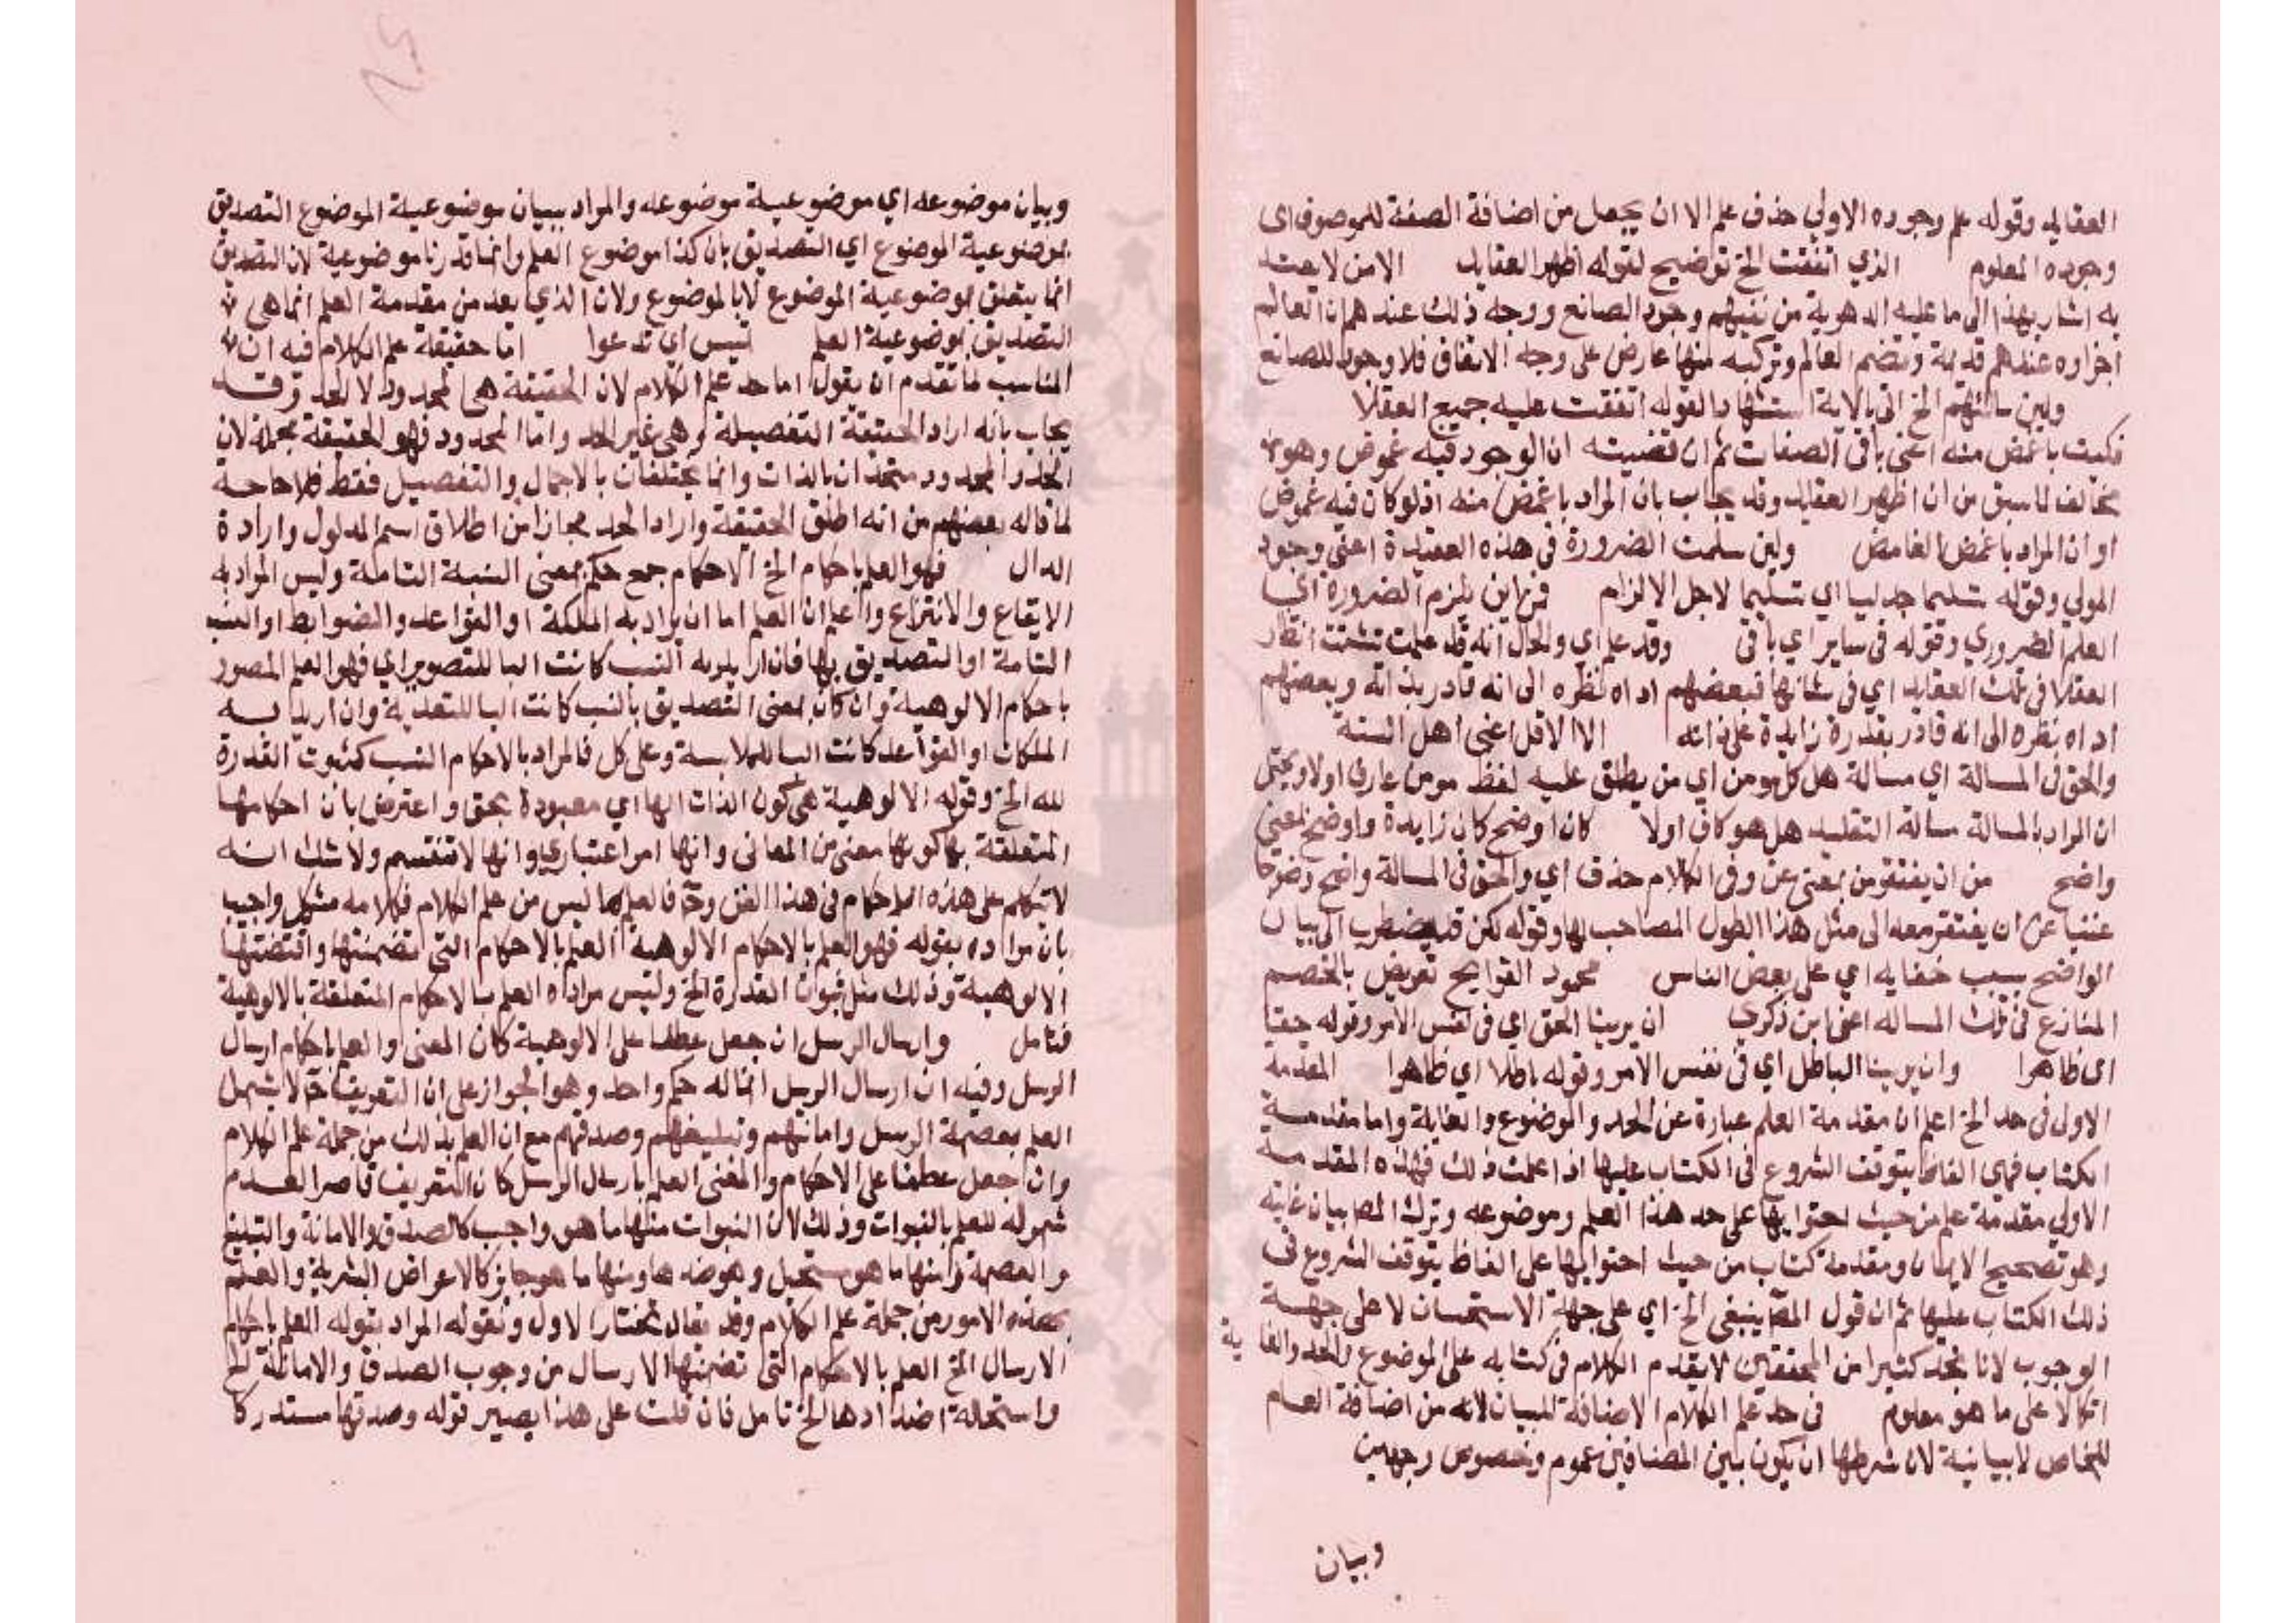 العقايد وقوله علم وجوده الاولي حذف علم الا ان يجعل من اضافة الصفة للموصوف اي
وجوده المعلوم الذي اتفقت الخ توضيح لقوله اظهر العقايد الا من لا يعتد
به اشار بهذا الى ما عليه الدهرية من نفيهم وجود الصانع ووجه ذلك عندهم ان العالم
اجزاوه عندهم قديمة وتضم العالم وتركبه منها عارض على وجه الاتفاق فلا وجود للصانع
ولين سالتهم الخ اتى بالاية استشهادا لقوله اتفقت عليه جميع العقلا
فكيف باغمض منه اعني باقي الصفات ثم ان قضيته ان الوجود فيه غموض وهو
مخالف لما سبق من ان اظهر العقايد وقد يجاب بان المراد باغمض منه اذ لو كان فيه غموض
او ان المراد باغمض الغامض ولين سلمت الضرورة في هذه العقيدة اعني وجود
المولي وقوله تسليما جدليا اي تسليما لاجل الالزام فمن اين يلزم الضرورة اي
العلم الضروري وقوله في ساير اي باقي وقد علم اي والحال انه قد علمت تشتت انظار
العقلا في تلك العقايد اي في شانها فبعضهم اداه نظره الى انه قادر بذاته وبعضهم
اداه نظره الى انه قادر بقدرة زايدة على ذاته الا الاقل اعني اهل السنة
والحق في المسالة اي مسالة هل كل مومن اي من يطلق عليه لفظ مومن عارف اولا ويحتمل
ان المراد بالمسالة مسالة التقليد هل هو كاف اولا كان اوضح كان زايدة واوضح بمعني
واضح من ان يفتقر من بمعنى عن وفي الكلام حذف اي والحق في المسالة واضح وضوحا
غنيا عن ان يفتقر معه الى مثل هذا الطول المصاحب لها وقوله لكن قد يضطرب الى بيان
الواضح بسبب خفايه اي على بعض الناس محمود القرايح تعريض بالخصم
المنازع في تلك المساله اعني ابن ذكري ان يرينا الحق اي في نفس الامر وقوله حقا
اي ظاهرا وان يرينا الباطل اي في نفس الامر وقوله باطلا اي ظاهرا المقدمة
الاولى في حد الخ اعلم ان مقدمة العلم عبارة عن الحد والموضوع والغاية واما مقدمة
الكتاب فهي الفاظ يتوقف الشروع في الكتاب عليها اذا علمت ذلك فهذه المقدمة
الاولي مقدمة علم من حيث احتوايها على حد هذا العلم وموضوعه وترك المص بيان غايته
وهو تصحيح الايمان ومقدمة كتاب من حيث احتوايها على الفاظ يتوقف الشروع في
ذلك الكتاب عليها ثم ان قول المص ينبغي الخ اي على جهة الاستحسان لا على جهة
الوجوب لانا نجد كثيرا من المحققين لا يقدم الكلام في كتابه على الموضوع والحد والغاية
اتكالا على ما هو معلوم في حد علم الكلام الاضافة للبيان لانه من اضافة العام
للخاص لا بيانية لان شرطها ان يكون بين المضافين عموم وخصوص وجهين
وبيان
وبيان موضوعه اي موضوعية موضوعه والمراد ببيان موضوعية الموضوع التصديق
بموضوعية الموضوع اي التصديق بان كذا موضوع العلم وانما قدرنا موضوعية لان التصديق
انما يتعلق بموضوعية الموضوع لا بالموضوع ولان الذي يعد من مقدمة العلم انما هي
التصديق بموضوعية العلم تيس اي تدعوا اما حقيقة علم الكلام فيه ان
المناسب لما تقدم ان يقول اما حد علم الكلام لان الحقيقة هي المحدود لا الحد وقد
يجاب بانه اراد الحقيقة التفصيلة وهي غير الحد واما المحدود فهو الحقيقة مجملة لان
الحد والمحدود متحدان بالذات وانما يختلفان بالاجمال والتفصيل فقط فلا حاجة
لما قاله بعضهم من انه اطلق الحقيقة واراد الحد مجازا من اطلاق اسم المدلول وارادة
الدال فهو العلم باحكام الخ الاحكام جمع حكم بمعنى النسبة التامة وليس المراد به
الايقاع والانتزاع واعلم ان العلم اما ان يراد به الملكة او القواعد والضوابط او النسب
التامة او التصديق بها فان اريد به النسب كانت البا للتصوير اي فهو العلم المصور
باحكام الالوهية وان كان بمعنى التصديق بالنسب كانت البا للتعدية وان اريد به
الملكات او القواعد كانت البا للملابسة وعلى كل فالمراد بالاحكام النسب كثبوت القدرة
لله الخ وقوله الالوهية هي كون الذات الها اي معبودة بحق واعترض بان احكامها
المتعلقة بها كونها معنى من المعاني وانها امر اعتباري وانها لا تنقسم ولا شك انه
لا يتكلم على هذه الاحكام في هذا الفن وح فالعلم بها ليس من علم الكلام فكلامه مشكل واجيب
بان مراده بقوله فهو العلم بالاحكام الالوهية العلم بالاحكام التي تضمنتها واقتضتها
الالوهية وذلك مثل ثبوت القدرة الخ وليس مراده العلم بالاحكام المتعلقة بالالوهية
فتامل وارسال الرسل ان جعل عطفا على الالوهية كان المعنى والعلم باحكام ارسال
الرسل وفيه ان ارسال الرسل انما له حكم واحد وهو الجواز على ان التعريف ح لا يشمل
العلم بعصمة الرسل وامانتهم وتبليغهم وصدقهم مع ان العلم بذلك من جملة علم الكلام
وان جعل عطفا على الاحكام والمعنى العلم بارسال الرسل كان التعريف قاصرا لعدم
شموله للعلم بالنبوات وذلك لان النبوات منها ما هو واجب كالصدق والامانة والتبليغ
والعصمة ومنها ما هو مستحيل وهو ضدها ومنها ما هو جايز كالاعراض البشرية والعلم
بهذه الامور من جملة علم الكلام وقد يقال نختار الاول ونقوله المراد بقوله العلم باحكام
الارسال الخ العلم بالاحكام التي تضمنها الارسال من وجوب الصدق والامانة الخ
واستحالة اضدادها الخ تامل فان قلت على هذا يصير قوله وصدقها مستدركا